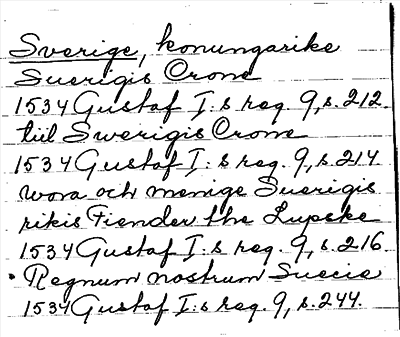 Sverige, konungarike
Suerigis Crone
1534 Gustaf I:s reg. 9, s. 212.
till Swerigis Crone
1534 Gustaf I:s reg. 9, s. 214
wora och menige Suerigis
rikis Fiender the Lupske
1534 Gustaf I:s reg. 9, s. 216.
• Regnum nostrum Suecie
1534 Gustaf I:s reg. 9, s. 244.